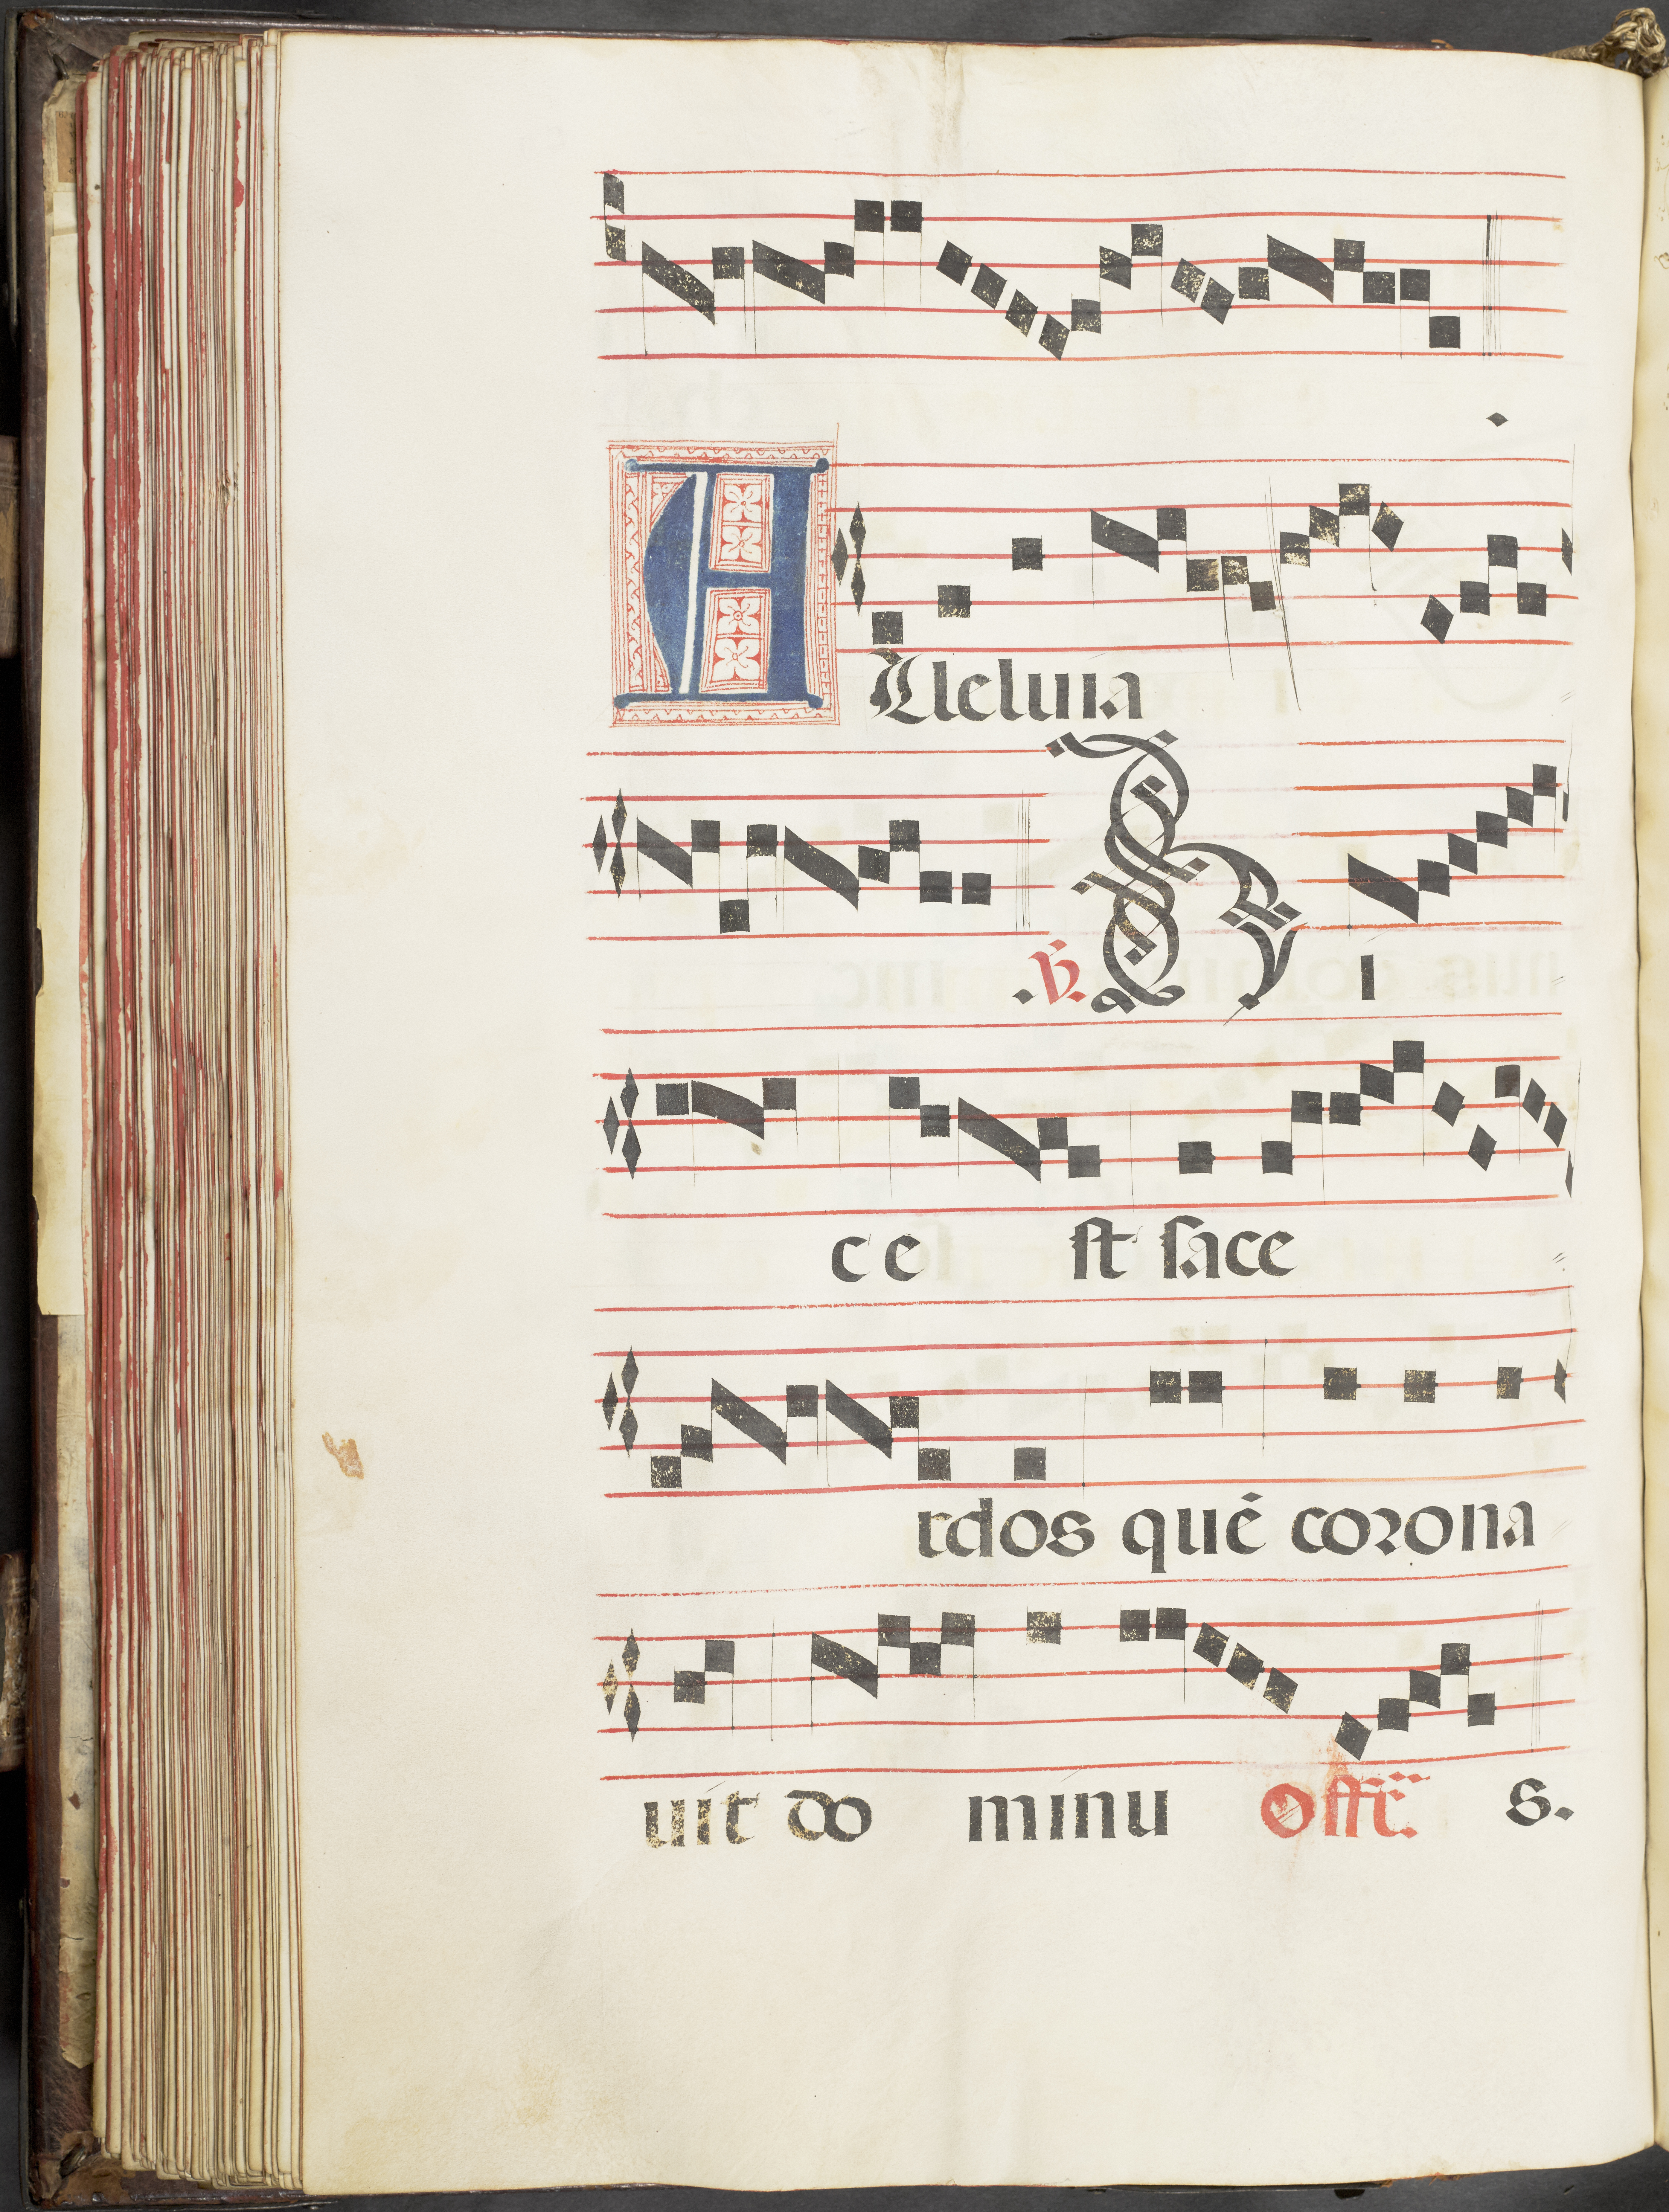 ALleluia
.℣. H i
c e st sace
rdos quē corona
uit do minu Offr̄. s.